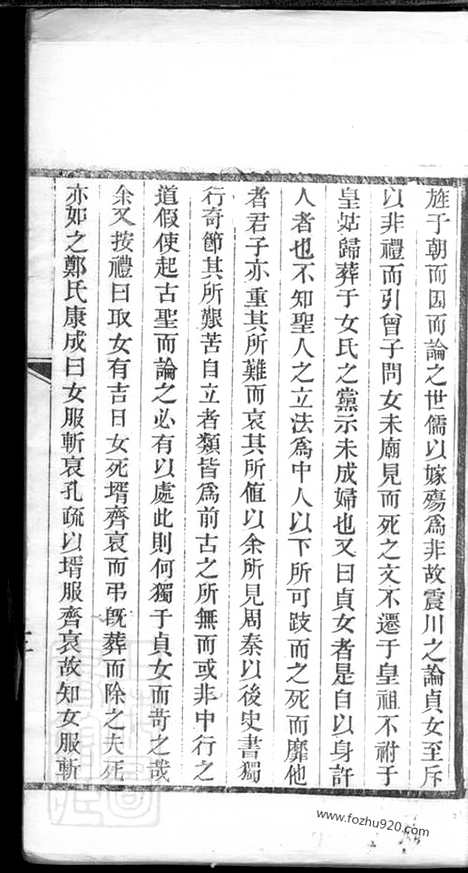 旌于朝而因而論之世儒以嫁殤爲非故震川之論貞女至斥
以非禮而引曾子問女未廟見而死之文不遷于皇祖不祔于
皇姑歸葬于女氏之黨示未成婦也又曰貞女者是自以身許
人者也不知聖人之立法爲中人以下所可跂而之死而靡他
者君子亦重其所難而哀其所値以余所見周秦以後史書獨
行奇節其所艱苦自立者類皆爲前古之所無而或非中行之
道假使起古聖而論之必有以處此則何獨于貞女而苛之哉
余又按禮曰取女有吉日女死壻齊衰而弔旣葬而除之夫死
亦如之鄭氏康成曰女服斬衰孔疏以壻服齊衰故知女服斬
www.fozhu920.com